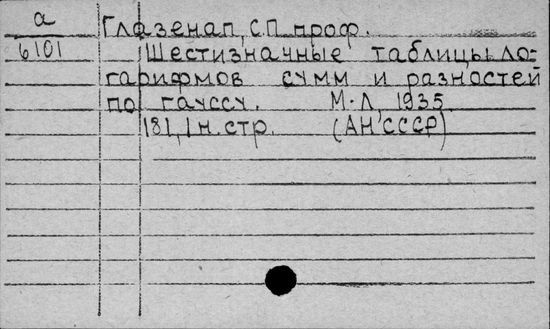 а
Глазенап, С.П. проф.
6101
Шестизначные таблицы ло-
гарифмов сумм и разностей
по гауссу. М-Л, 1935
181, 1 н. стр. (АН СССР)